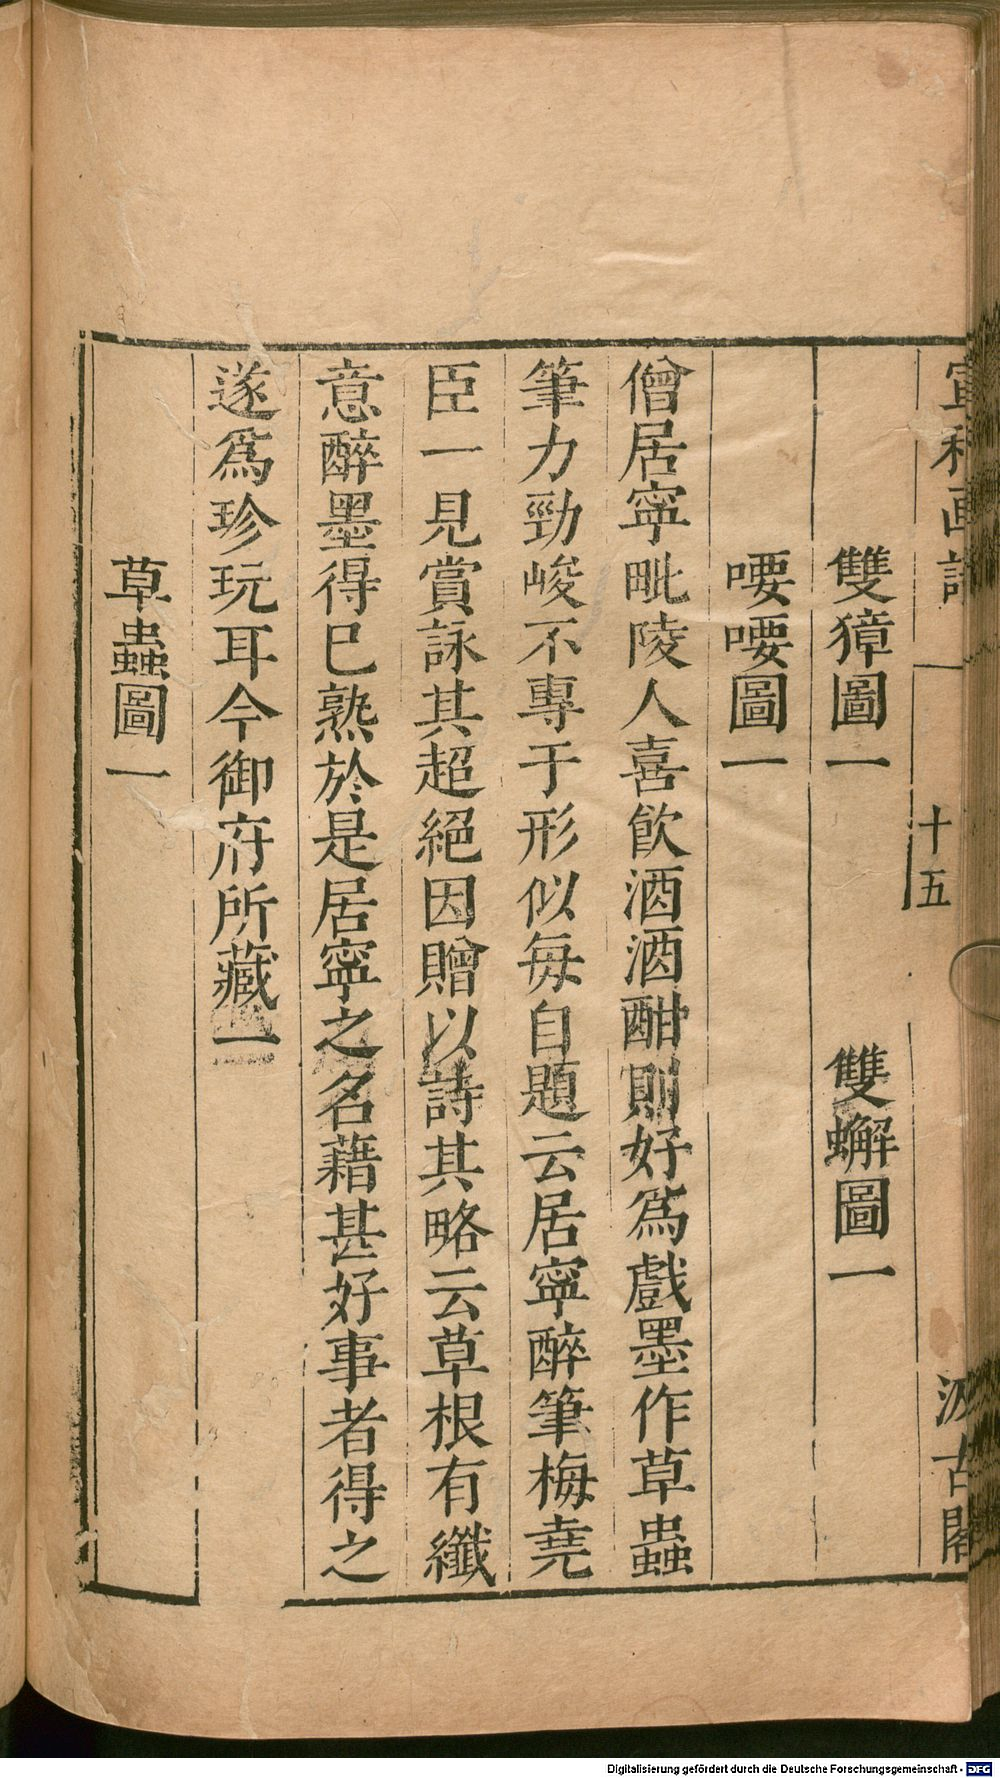 宣和画譜 十五 汲古閣
雙獐圖一 雙蠏圖一
喓喓圖一
僧居寧毗陵人喜飲酒酒酣則好爲戲墨作草蟲
筆力勁峻不專于形似每自題云居寧醉筆梅堯
臣一見賞詠其超絕因贈以詩其略云草根有纖
意醉墨得已熟於是居寧之名藉甚好事者得之
遂爲珍玩耳今御府所藏一
草蟲圖一
Digitalisierung gefördert durch die Deutsche Forschungsgemeinschaft - DFG